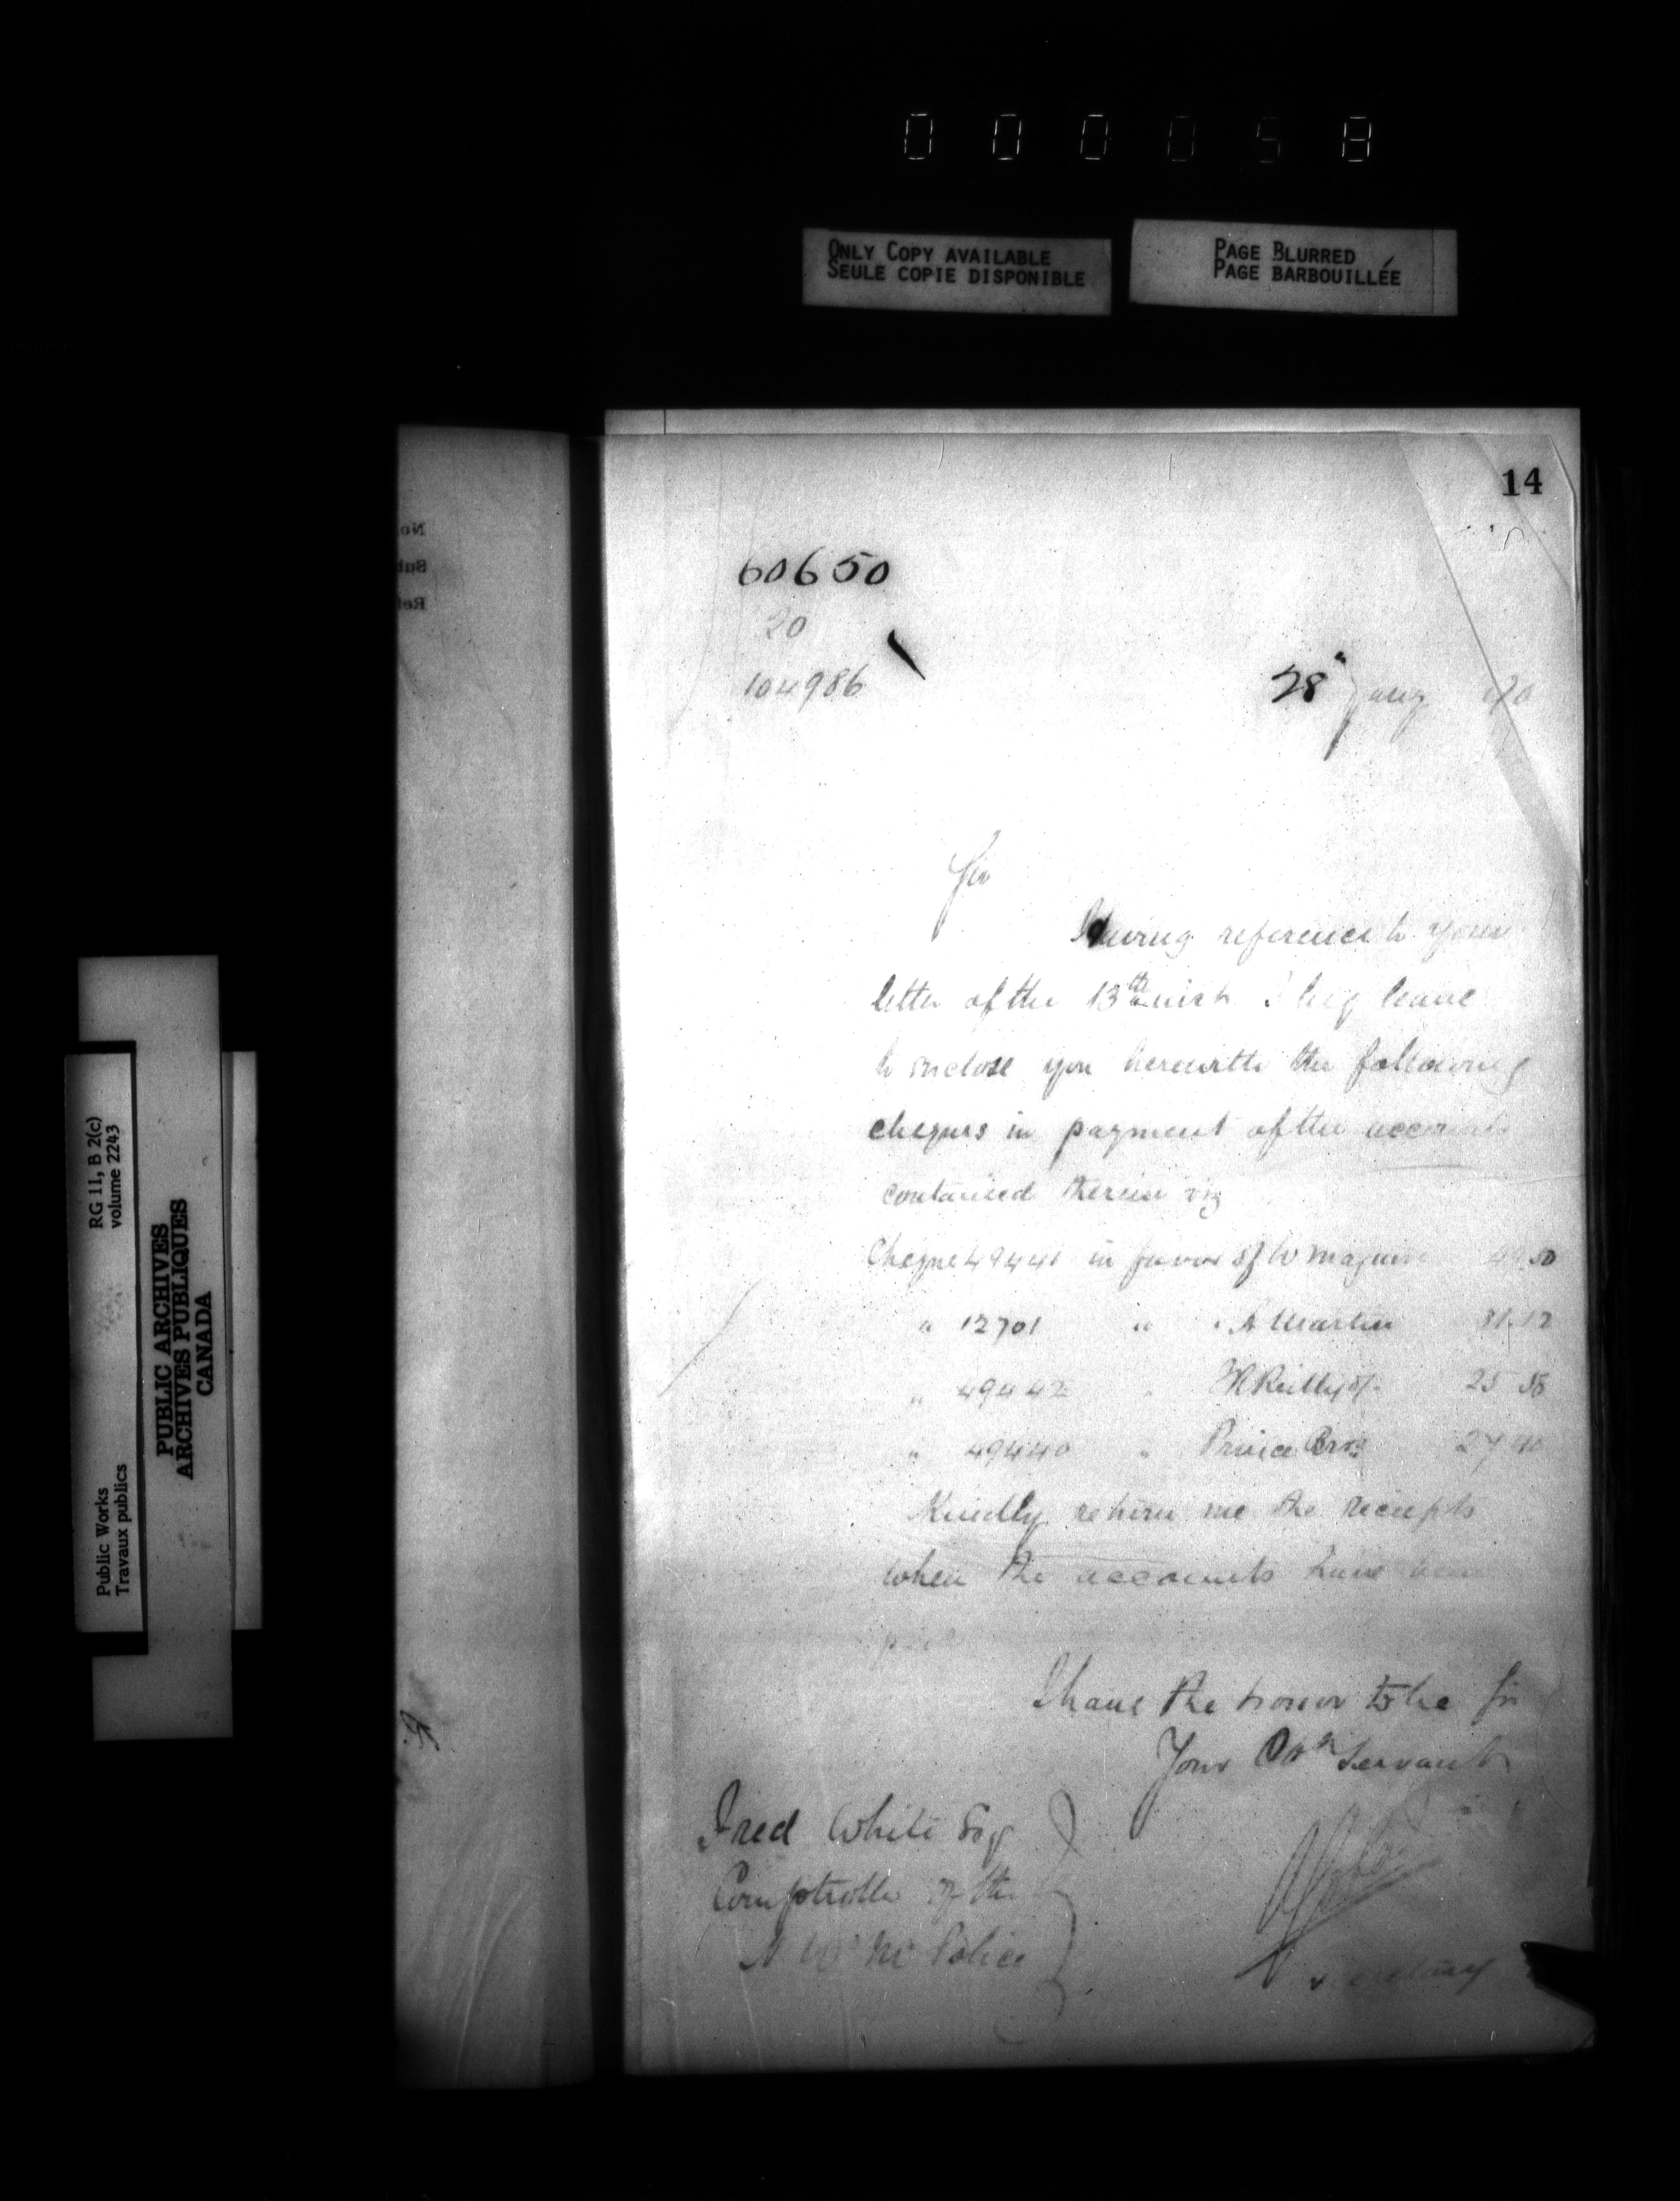 000058
ONLY COPY AVAILABLE
SEULE COPIE DISPONIBLE
PAGE BLURRED
PAGE BARBOUILLÉE
RG 11, B 2(c)
volume 2243
PUBLIC ARCHIVES
ARCHIVES PUBLIQUES
CANADA
Public Works
Travaux publics
14
60650
20
104986
28" Jany
Sir
Having reference to your
letter of the 13th inst I beg leave
to inclose you herewith the following
cheques in payment of the accounts
contained therein viz
Cheque 49441 in favor of W Maguire 50
" 12701 " " A Martin 31.12
" 49442 " Reilly 25 58
" 49440 " Prince Bros 27
Kindly return me the receipts
when the accounts have been
paid
I have the honor to be Sir
Your Obt Servant
Fred White Esq
Comptroller of the
N W M Police
Secretary